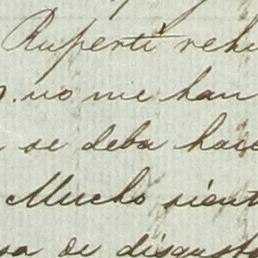 Ruperti rehu
no me han
se deba hace
Mucho sient
de disgusto